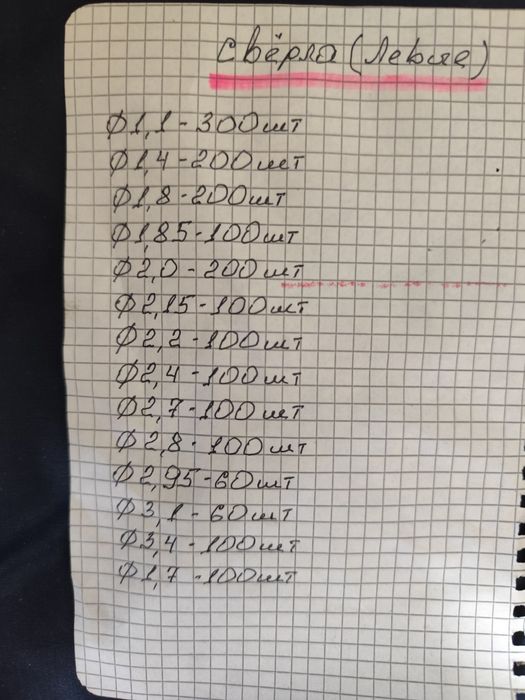 Свёрла (Левые)
Ф1,1 - 300шт
Ф1,4 - 200шт
Ф1,8 - 200шт
Ф1,85 - 100шт
Ф2,0 - 200шт
Ф2,15 - 100шт
Ф2,2 - 100шт
Ф2,4 - 100шт
Ф2,7 - 100шт
Ф2,8 - 100шт
Ф2,95 - 60шт
Ф3,1 - 60шт
Ф3,4 - 100шт
Ф1,7 - 100шт